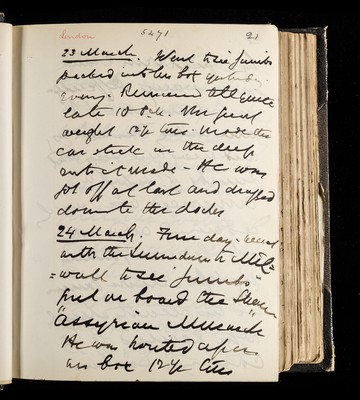 London 5271 21
23 March. Went to see Jumbo
packed into his box yesterday
evening. Remained till quite
late 10 P.M. The great
weight 12½ tons made the
car stick in the deep
ruts it made - He was
got off at last and dragged
down to the docks
24 March. Fine day - went
with the to Mil-
=wall to see "Jumbo"
put on board the Steamer
"Assyrian Monarch
He was hoisted up in
his box 12½ tons